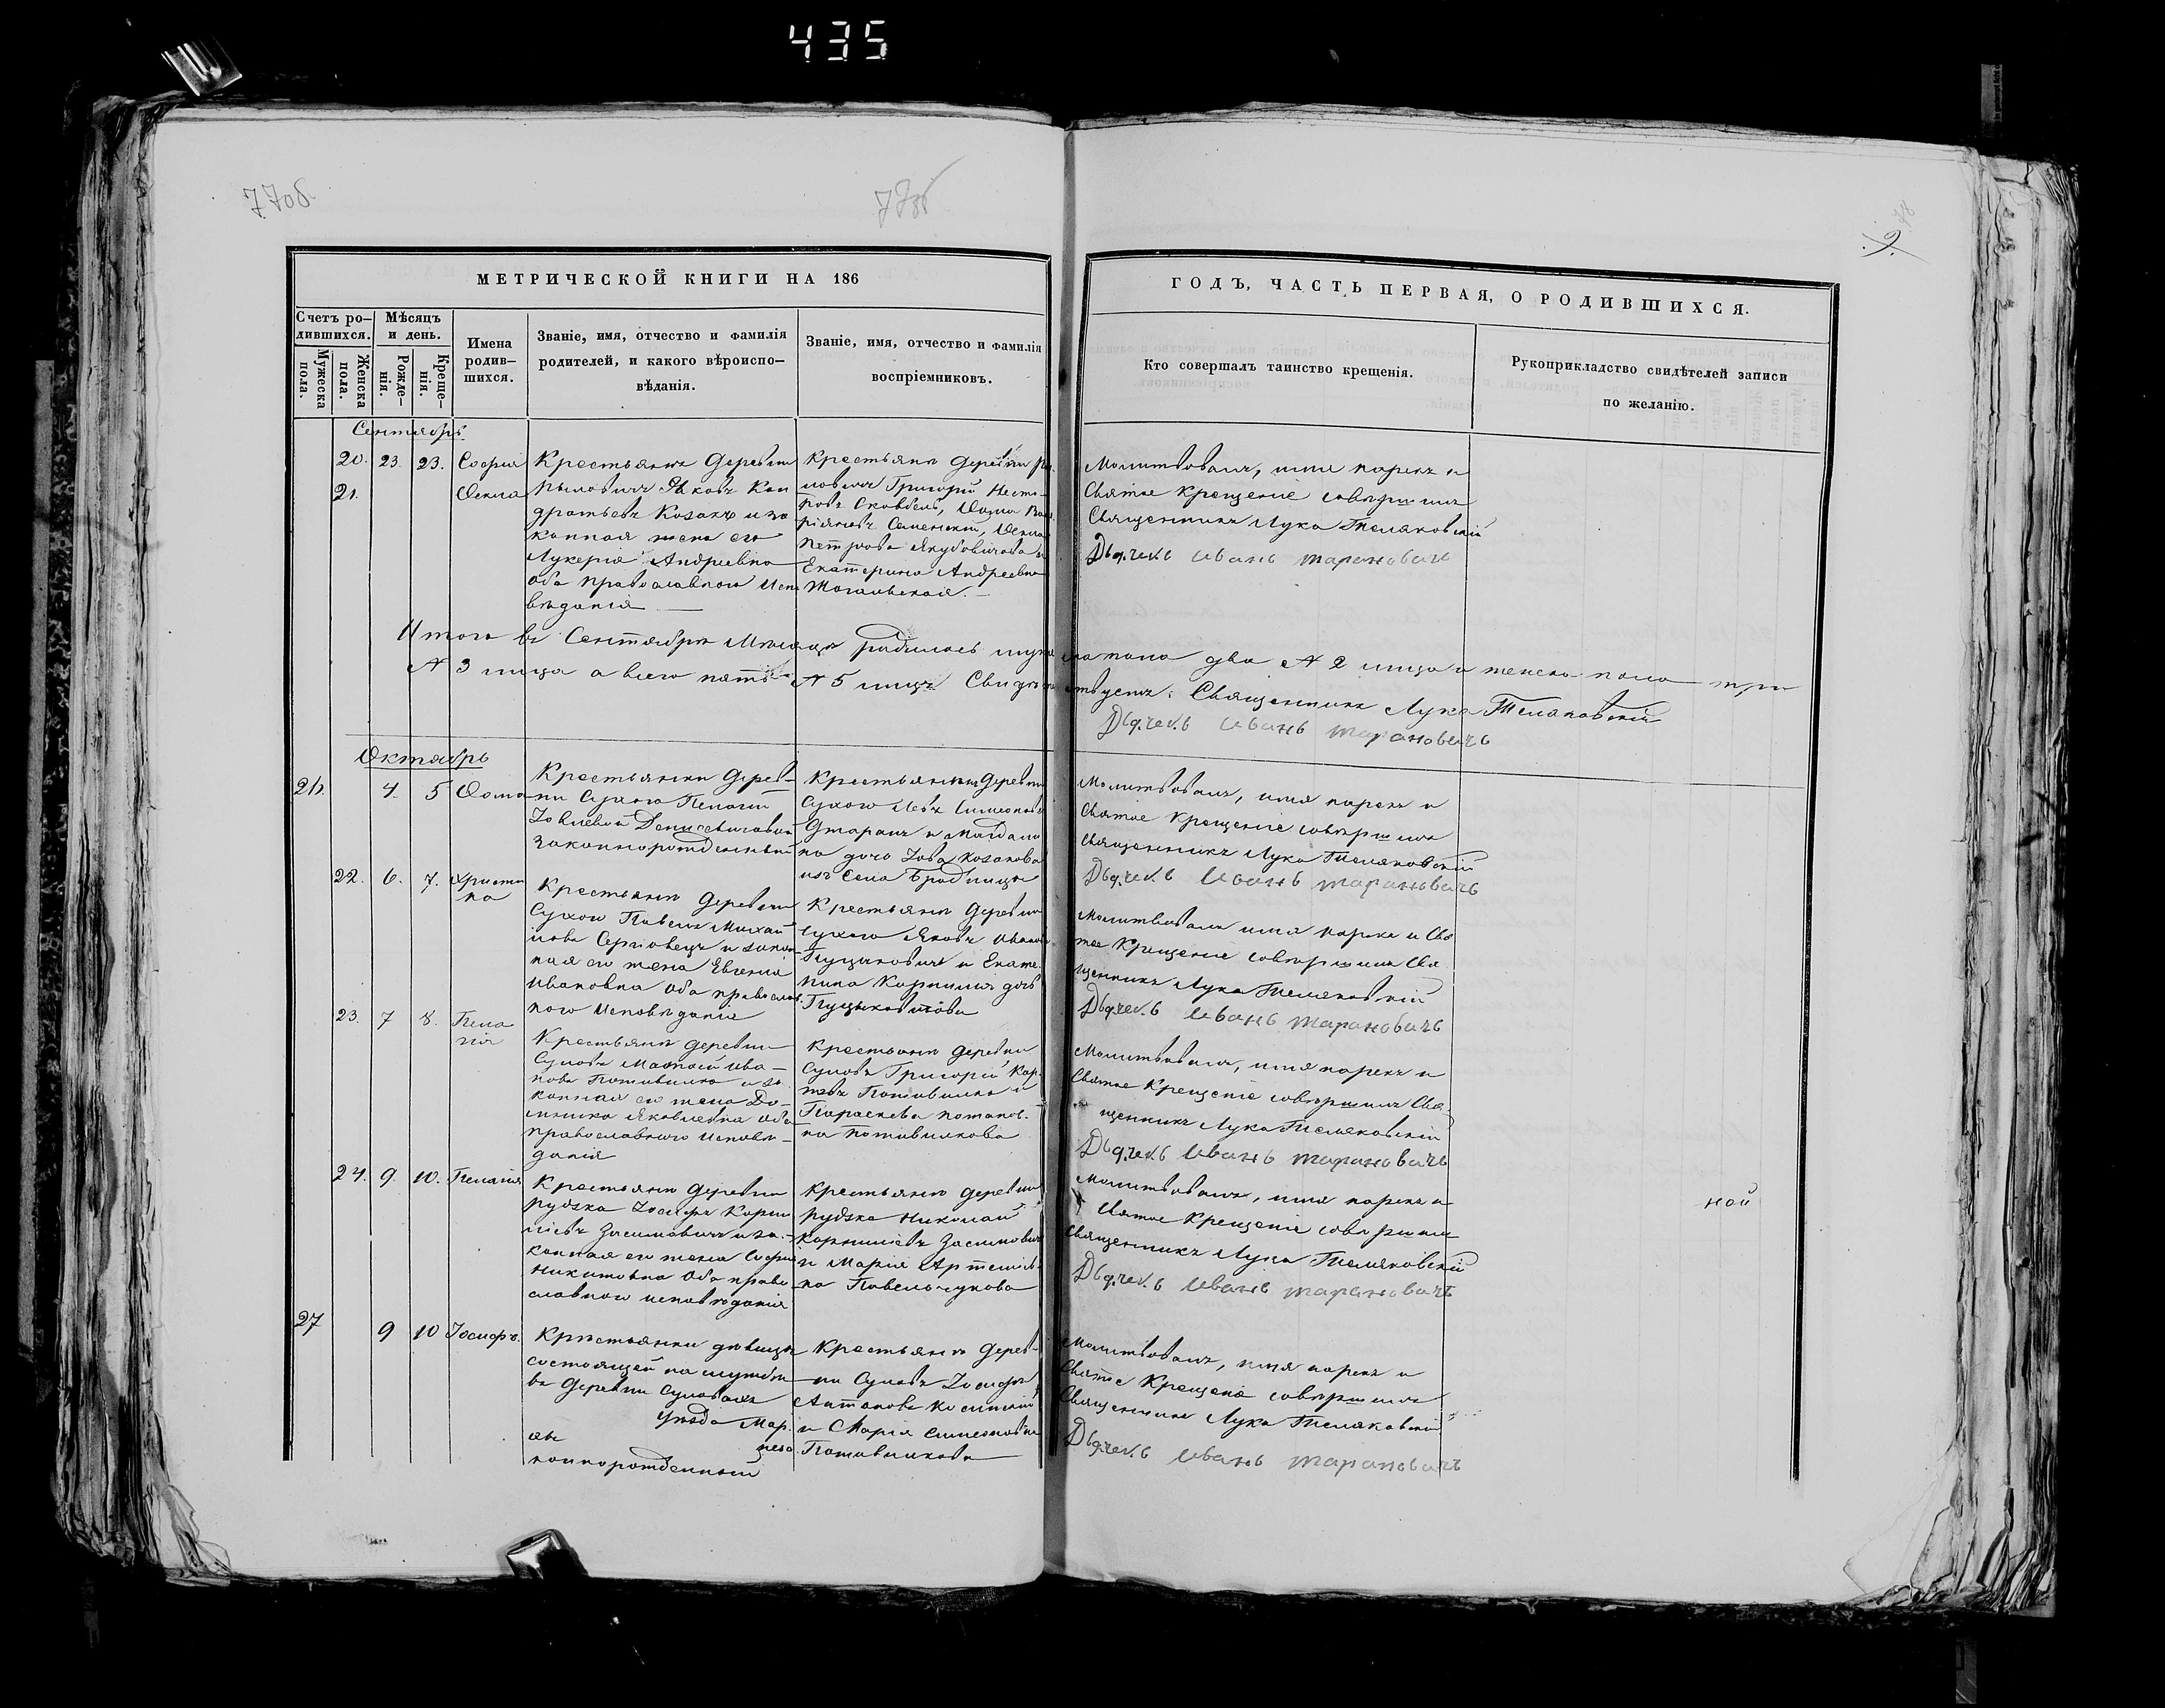 435
77об.
77об
78
МЕТРИЧЕСКОЙ КНИГИ НА 186
ГОДЪ, ЧАСТЬ ПЕРВАЯ, О РОДИВШИХСЯ.
Счетъ ро-
дившихся.
Мужеска пола.
Женска пола.
Мѣсяцъ
и день.
Рожде-
нія.
Креще-
нія.
Имена
родив-
шихся.
Званіе, имя, отчество и фамилія
родителей, и какого вѣроиспо-
вѣданія.
Званіе, имя, отчество и фамилія
воспріемниковъ.
Кто совершалъ таинство крещенія.
Рукоприкладство свидѣтелей записи
по желанію.
Сентябрь
20. 23. 23. Софія
21. Ѳекла
Крестьянинъ деревни
Яковъ Кон
дратьевъ Козакъ и за
конная жена его
Лукерія Андреевна
оба православнаго Испо
вѣданія
Крестьяни деревни
Григорій Несте
ровъ Ѳома
Ѳекла
Петрова Якубовичова и
Екатерина Андреевна
Молитвовалъ, имя нарекъ и
Святое Крещеніе совершилъ
Священникъ Лука Теляковскій
Дьячекъ Иванъ Тарановичъ
Итого въ Сентябрѣ Мѣсяцѣ родилось муже ска пола два № 2 лица а женска пола три
№ 3 лица а всего пять № 5 лицъ Свидѣтельствуетъ: Священникъ Лука Теляковскій
Дьячекъ Иванъ Тарановичъ
Октябрь
26. 4. 5 Ѳома
Крестьянки дерев-
ни Сухого Пелагіи
Іовлевой Денисевичовой
законнорожденный
Крестьянинъ деревни
Сухого Левъ Симеоновъ
и Магдали
на дочь Іова Козакова
изъ Села Бродницы
Молитвовалъ, имя нарекъ и
Святое Крещеніе совершилъ
Священникъ Лука Теляковскій
Дьячекъ Иванъ Тарановичъ
22. 6. 7. Христи
на
Крестьянинъ деревни
Сухого Павелъ Михай
ловъ и закон
ная его жена Евгенія
Ивановна оба православ
ного Исповѣданія
Крестьяни деревни
Сухого Яковъ Ивановъ
и Екате
рина Корнилія дочь
Молитвовалъ имя нарекъ и Свя
тое Крещеніе совершилъ Свя
щенникъ Лука Теляковскій
Дьячекъ Иванъ Тарановичъ
23. 7 8. Пела
гія
Крестьянинъ деревни
Матфей Ива-
новъ и за
конная его жена До-
мника Яковлевна оба
православного исповѣ-
данія
Крестьяни деревни
Григорій Кар
и
Параскева Потапов-
на
Молитвовалъ, имя нарекъ и
Святое Крещеніе совершилъ Свя-
щенникъ Лука Теляковскій
Дьячекъ Иванъ Тарановичъ
24. 9. 10. Пелагія
Крестьянинъ деревни
Рудзка Іосифъ Корни
ліевъ Засимовичъ и за-
конная его жена Софія
Никитовна оба право
славного исповѣданія
Крестьяни деревни
Рудзка Николай
Корниліевъ Засимовичъ
и Марія
на Павельчукова
Молитвовалъ, имя нарекъ и
Святое Крещеніе совершилъ
Священникъ Лука Теляковскій
Дьячекъ Иванъ Тарановичъ
ной
27 9 10 Іосифъ.
Крестьянки дѣвицы
состоящей на службѣ
въ деревни
Уѣзда Мар
незо
коннорожденный
Крестьяни дерев-
ни Іосифъ
Антоновъ
и Марія Симеоновна
Молитвовалъ, имя нарекъ и
Святое Крещеніе совершилъ
Священникъ Лука Теляковскій
Дьячекъ Иванъ Тарановичъ